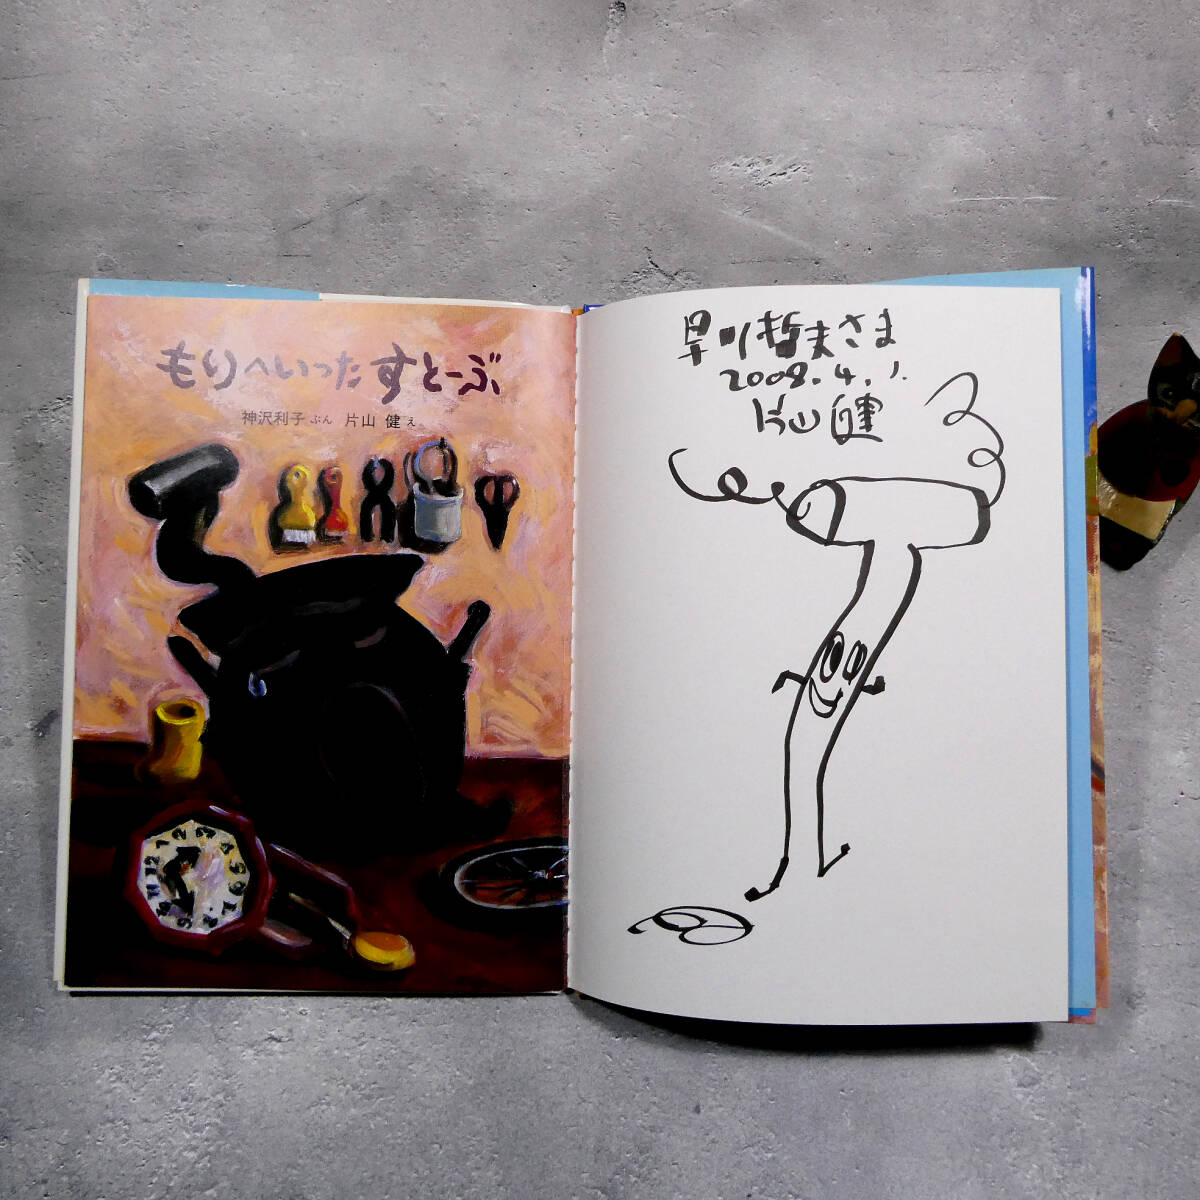 もりへいったすとーぶ
神沢利子 ぶん 片山 健 え
早川哲夫さま
2008.4.1.
片山健